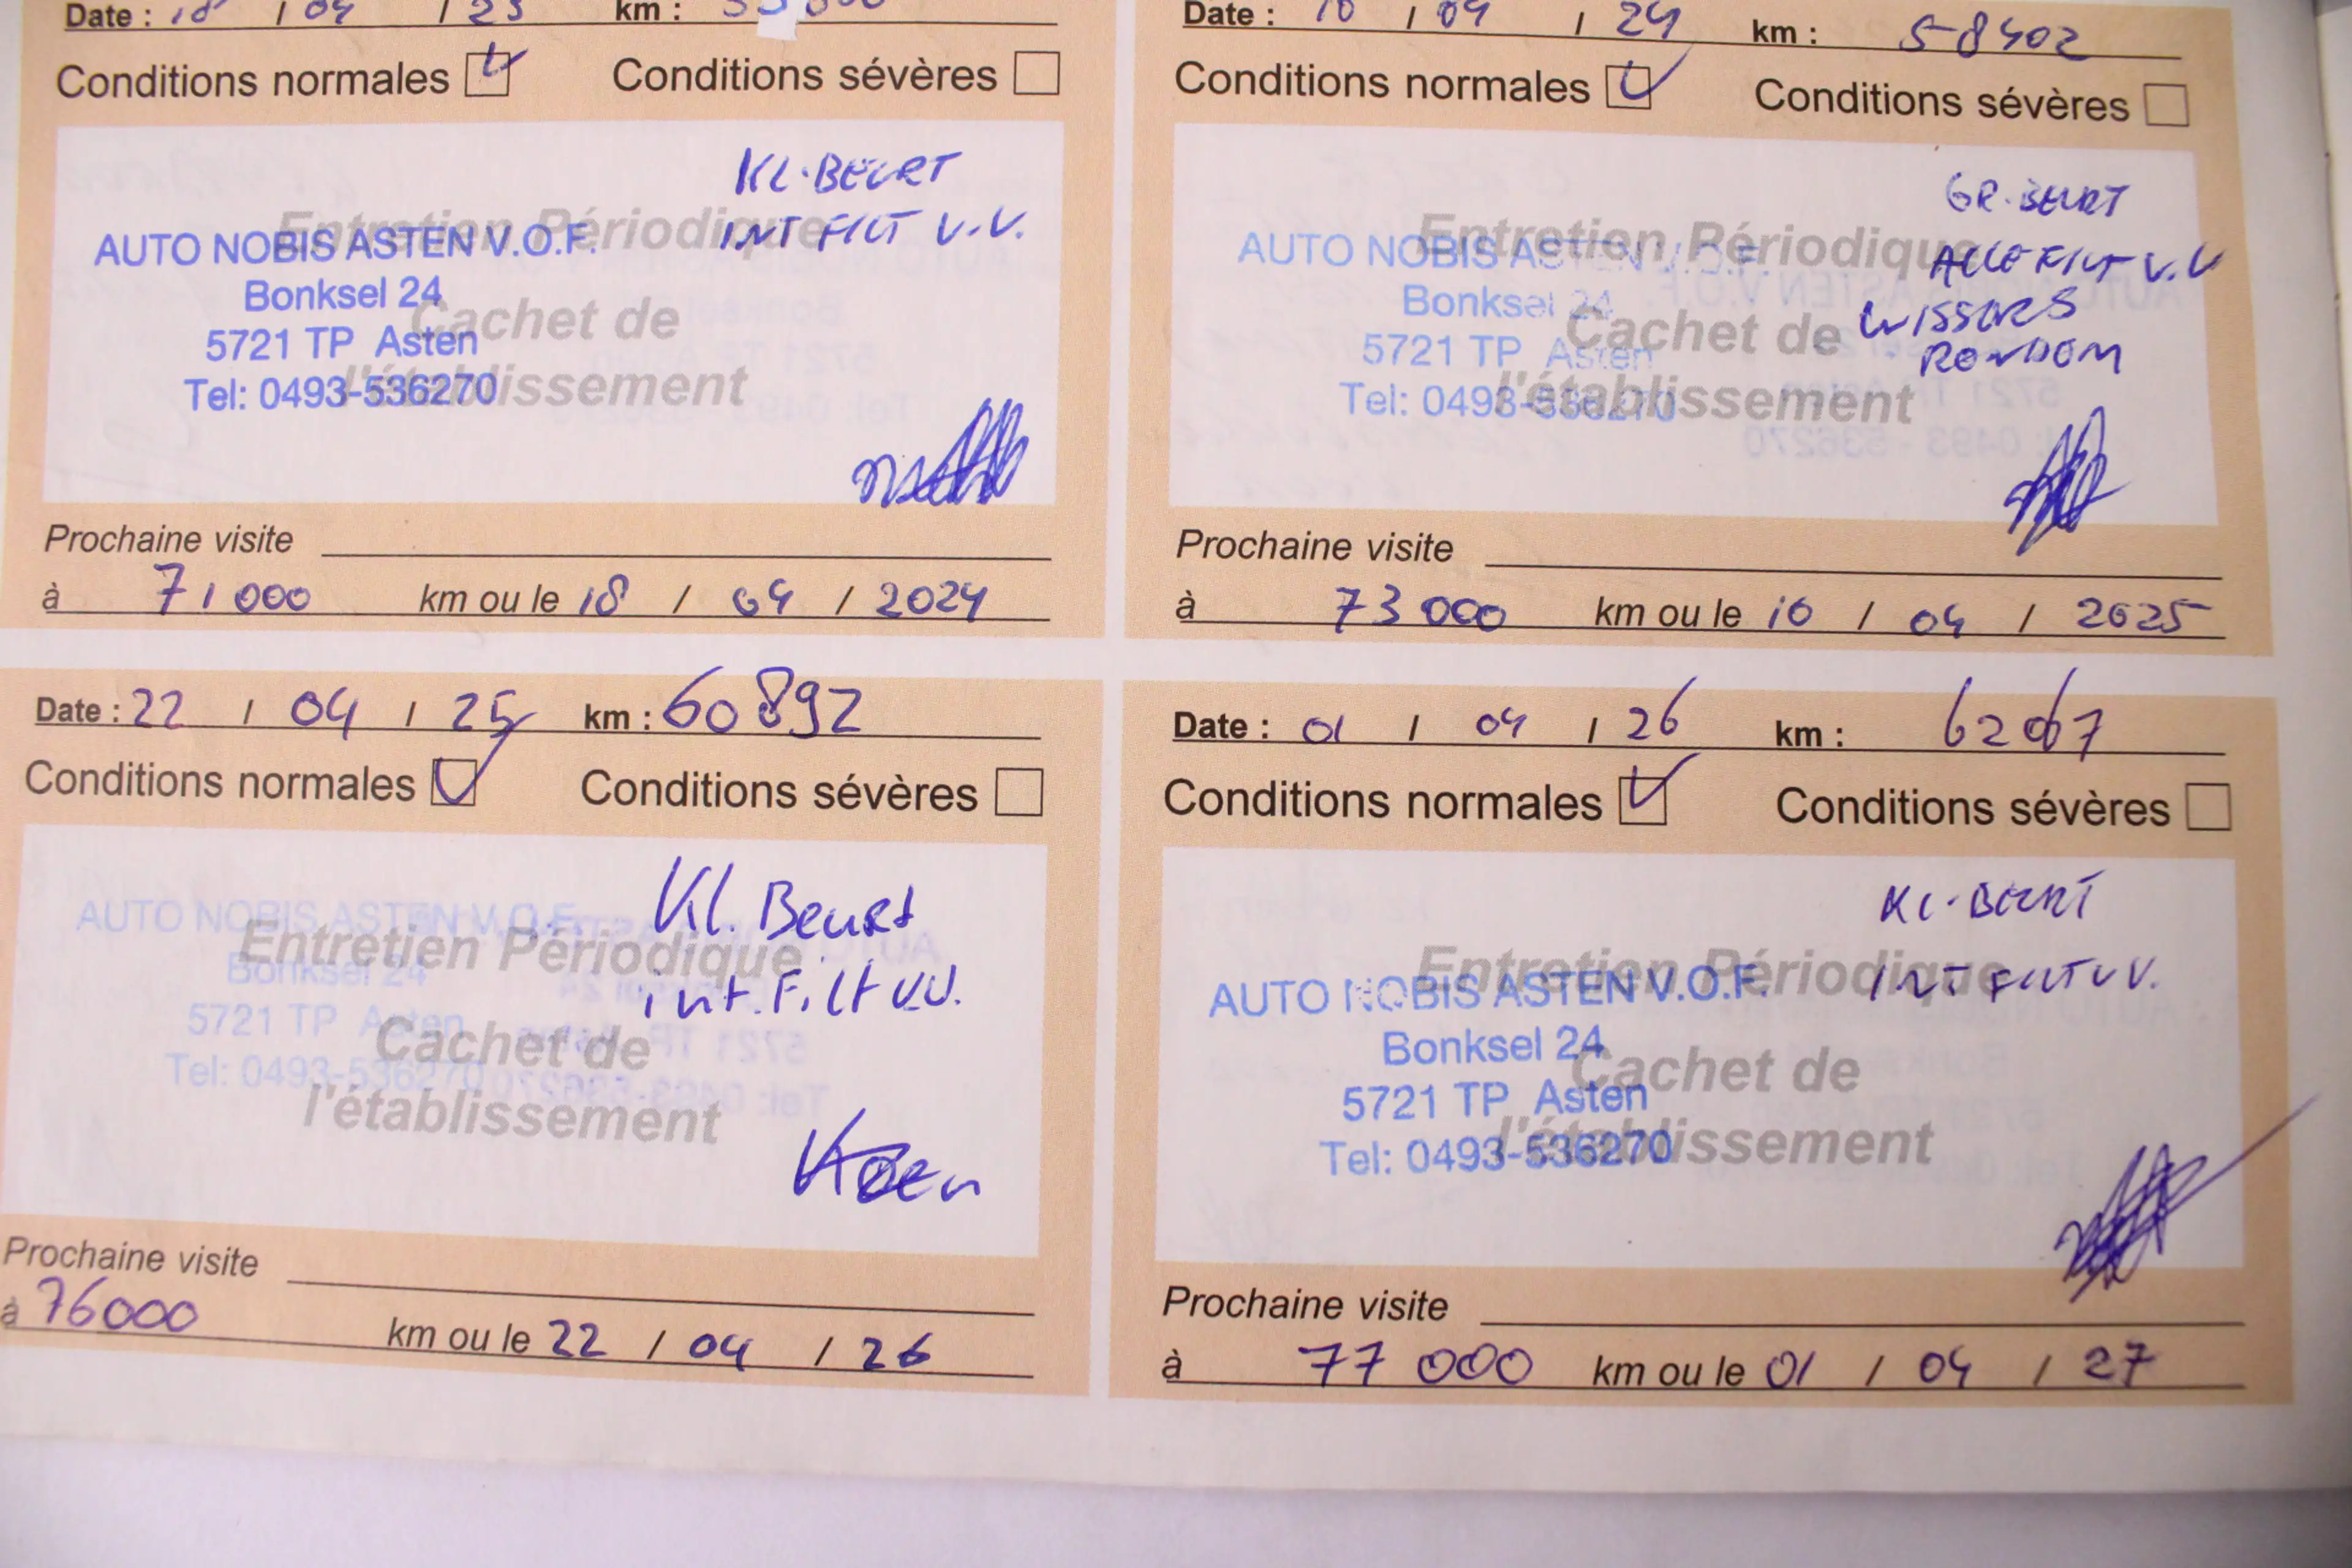 Date : 18 / 04 / 23 km :
Conditions normales Conditions sévères
KL. BEURT
INT FILT V.V.
Entretien Périodique
Cachet de
l'établissement
AUTO NOBIS ASTEN V.O.F.
Bonksel 24
5721 TP Asten
Tel: 0493-536270
Prochaine visite
à 71000 km ou le 18 / 04 / 2024
Date : 10 / 04 / 24 km : 58402
Conditions normales Conditions sévères
GR. BEURT
ALLE FILT V.V
WISSERS
RONDOM
Entretien Périodique
Cachet de
l'établissement
AUTO NOBIS ASTEN V.O.F.
Bonksel 24
5721 TP Asten
Tel: 0493-536270
Prochaine visite
à 73000 km ou le 10 / 04 / 2025
Date : 22 / 04 / 25 km : 60892
Conditions normales Conditions sévères
Kl. Beurt
int. Filt V.V.
Entretien Périodique
Cachet de
l'établissement
AUTO NOBIS ASTEN V.O.F.
Bonksel 24
5721 TP Asten
Tel: 0493-536270
Koen
Prochaine visite
à 76000 km ou le 22 / 04 / 26
Date : 01 / 04 / 26 km : 62067
Conditions normales Conditions sévères
KL. BEURT
INT FILT V V.
Entretien Périodique
Cachet de
l'établissement
AUTO NOBIS ASTEN V.O.F.
Bonksel 24
5721 TP Asten
Tel: 0493-536270
Prochaine visite
à 77000 km ou le 01 / 04 / 27